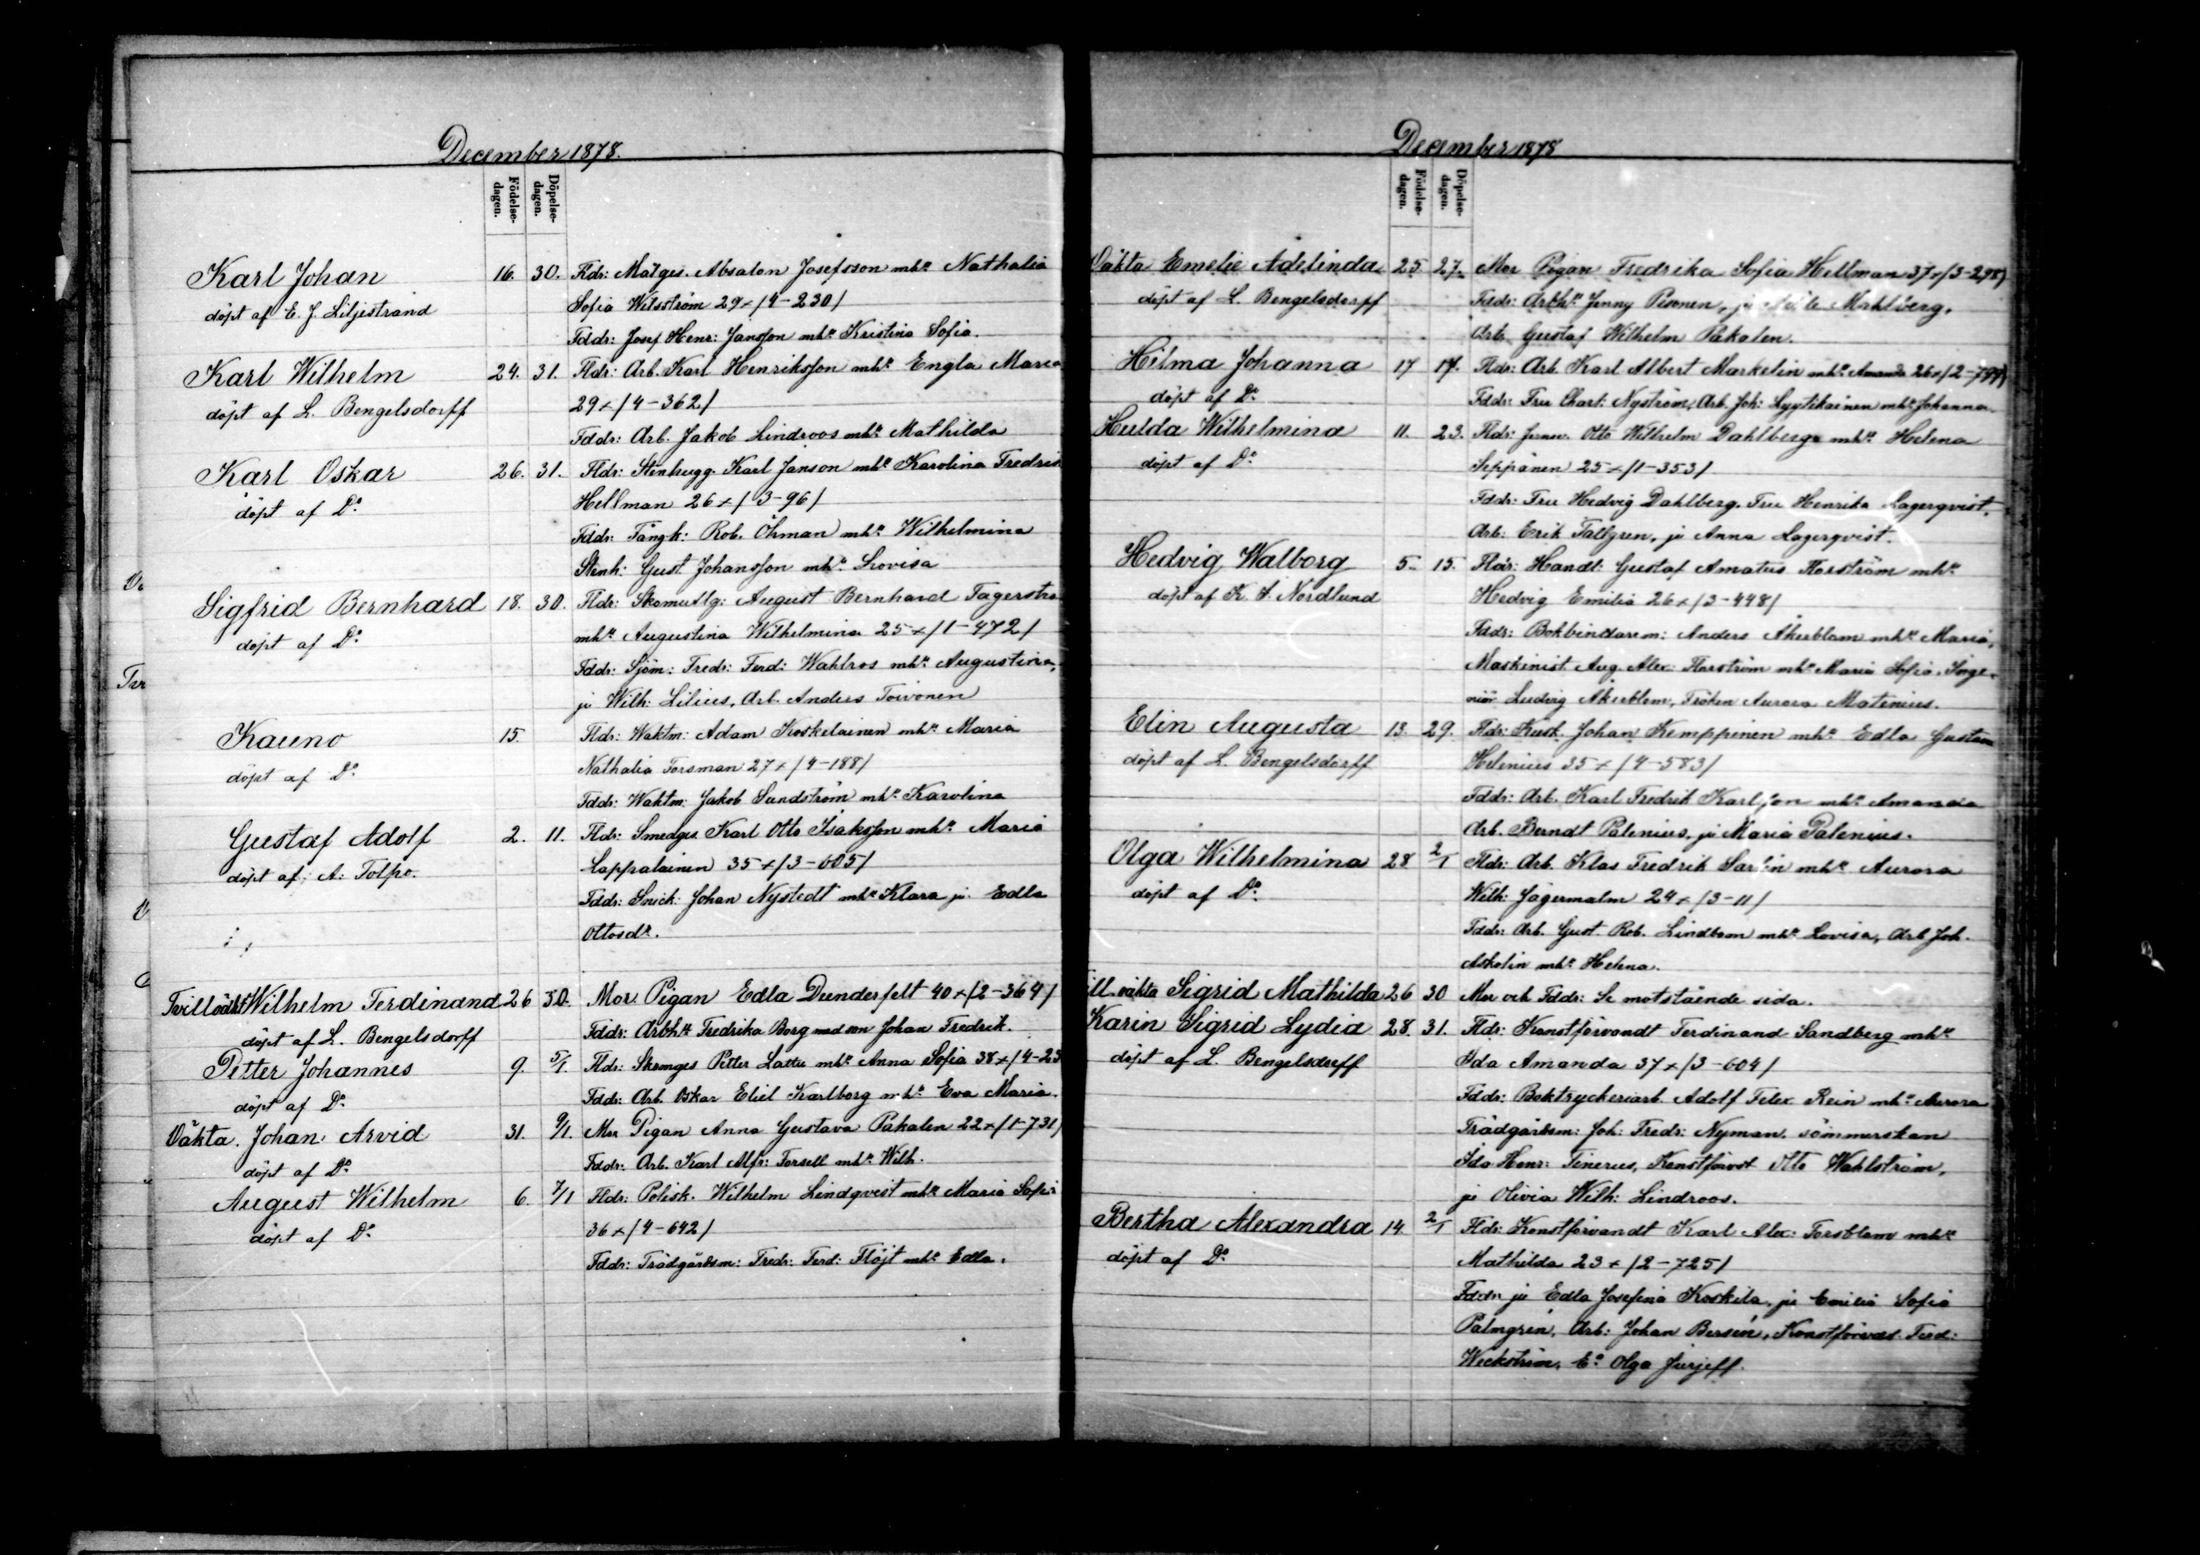 December 1878.
Födelse-dagen.
Döpelse-dagen.
Karl Johan 16. 30. Fldr: Matges. Absalon Josefsson mhu Nathalia
döpt af E. J. Liljestrand Sofia Wilsström 29 x /4-230/
Fddr: Josef Henr: Jansson mhu Kristina Sofia.
Karl Wilhelm 24. 31. Fldr: Arb. Karl Henriksson mhu Engla Maria
döpt af L. Bengelsdorff 29 x /4-362/
Fddr: Arb. Jakob Lindroos mhu Mathilda
Karl Oskar 26. 31. Fldr: Stenhugg. Karl Janson mhu Karolina Fredrik
döpt af Do Hellman 26 x /3-96/
Fddr: Fångk: Rob. Öhman mhu Wilhelmina
Stenh: Gust. Johansson mhu Lovisa
Sigfrid Bernhard 18. 30. Fldr: Skomutlg: August Bernhard Fagerströ
döpt af Do mhu Augustina Wilhelmina 25 x /1-472/
Fddr: Sjöm: Fredr: Ferd: Wahlros mhu Augustina,
ju Wilh: Lilius, Arb. Anders Toivonen
Kauno 15. Fldr: Waktm: Adam Koskelainen mhu Maria
döpt af Do Nathalia Forsman 27 x /4-188/
Fddr: Waktm: Jakob Sundström mhu Karolina
Gustaf Adolf 2. 11. Fldr: Smedges. Karl Otto Isaksson mhu Maria
döpt af: A: Tolpo. Lappalainen 35 x /3-605/
Fddr: Snick: Johan Nystedt mhu Klara ju Edla
Ottosdr.
Tvill. oäkta Wilhelm Ferdinand 26 30. Mor Pigan Edla Dunderfelt 40 x /2-364/
döpt af L. Bengelsdorff Fddr: Arbhu Fredrika Borg med son Johan Fredrik.
Petter Johannes 9. 5/1 Fldr: Skomges Petter Lattu mhu Anna Sofia 38 x /4-23
döpt af Do Fddr: Arb. Oskar Eliel Karlborg mhu Eva Maria.
Oäkta. Johan Arvid 31. 9/1. Mor Pigan Anna Gustava Pakalen 22 x /1-731/
döpt af Do Fddr: Arb. Karl Alfr: Forsell mhu Wilh.
August Wilhelm 6. 7/1 Fldr: Polisk. Wilhelm Lindqvist mhu Maria Sofia
döpt af Do 36 x /4-642/
Fddr: Trädgårdsm: Fredr: Ferd: Flöjt mhu Edla.
December 1878
Födelse-dagen.
Döpelse-dagen.
Oäkta Emelie Adelinda 25 27. Mor Pigan Fredrika Sofia Hellman 37 x /3-298/
döpt af L. Bengelsdorff Fddr: Arbhu Jenny Pesonen, ju Mahlberg,
Arb. Gustaf Wilhelm Pakalen.
Hilma Johanna 17 17. Fldr: Arb. Karl Albert Markelin mhu Amanda 26 x /2-799/
döpt af Do Fddr: Fru Charl: Nyström, Arb. Joh: Lyytikäinen mhu Johanna
Hulda Wilhelmina 11. 23. Fldr: Otto Wilhelm Dahlberg mhu Helena
döpt af Do Seppänen 25 x /1-353/
Fddr: Fru Hedvig Dahlberg. Fru Henrika Lagerqvist,
Arb: Erik Tallgren, ju Anna Lagerqvist.
Hedvig Walborg 5. 15. Fldr: Handl: Gustaf Amatus Florström mhu
döpt af K. J. Nordlund Hedvig Emilia 26 x /3-448/
Fddr: Bokbindarem: Anders Åkerblom mhu Maria,
Maskinist Aug. Alex: Florström mhu Maria Sofia. Inge-
niör Ludvig Åkerblom, Fröken Aurora Matenius.
Elin Augusta 13. 29. Fldr: Kusk. Johan Kemppinen mhu Edla Gustava
döpt af L. Bengelsdorff Helenius 35 x /4-583/
Fddr: Arb. Karl Fredrik Karlsson mhu Amanda
Arb. Berndt Palenius, ju Maria Palenius.
Olga Wilhelmina 28 2/1 Fldr: Arb. Klas Fredrik Sarlin mhu Aurora
döpt af Do Wilh: Jägermalm 24 x /3-11/
Fddr: Arb. Gust. Rob. Lindbom mhu Lovisa, Arb. Joh.
Askolin mhu Helena.
ill. oäkta Sigrid Mathilda 26 30 Mor och Fddr: Se motstående sida.
Karin Sigrid Lydia 28. 31. Fldr: Konstförvandt Ferdinand Sandberg mhu
döpt af L. Bengelsdorff Ida Amanda 37 x /3-604/
Fddr: Boktryckeriarb. Adolf Felix Rein mhu Aurora
Trädgårdsm: Joh: Fredr: Nyman, sömmerskan
Ida Henr: Finerus, Konstförvdt Otto Wahlström,
ju Olivia Wilh: Lindroos.
Bertha Alexandra 14. 2/1 Fldr: Konstförvandt Karl Alex: Forsblom mhu
döpt af Do Mathilda 23 x /2-725/
Fddr: ju Edla Josefina Koskela, ju Emilia Sofia
Palmgren, Arb: Johan Bersén, Konstförvdt. Ferd:
Weckström, Eo Olga Jurjeff.